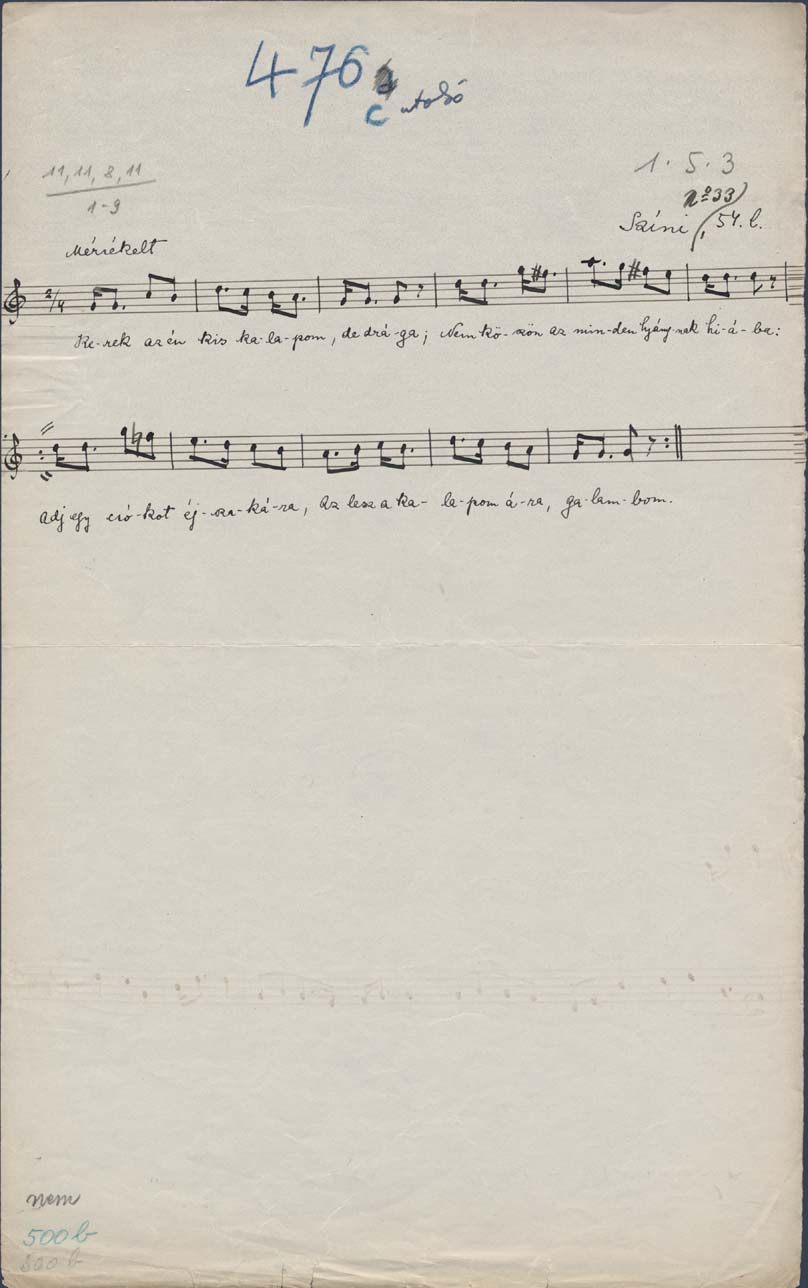 476
c utolsó
11, 11, 8, 11
1-9
1. 5. 3
Nº 33)
Színi, 54. l.
Mérsékelt
2/4
Ke-rek az én kis ka-la-pom, de drá-ga; Nem kö-szön az min-den lyány-nak hi-á-ba:
Adj egy csó-kot éj-sza-ká-ra, Az lesz a ka-la-pom á-ra, ga-lam-bom.
nem
500 b
500 b